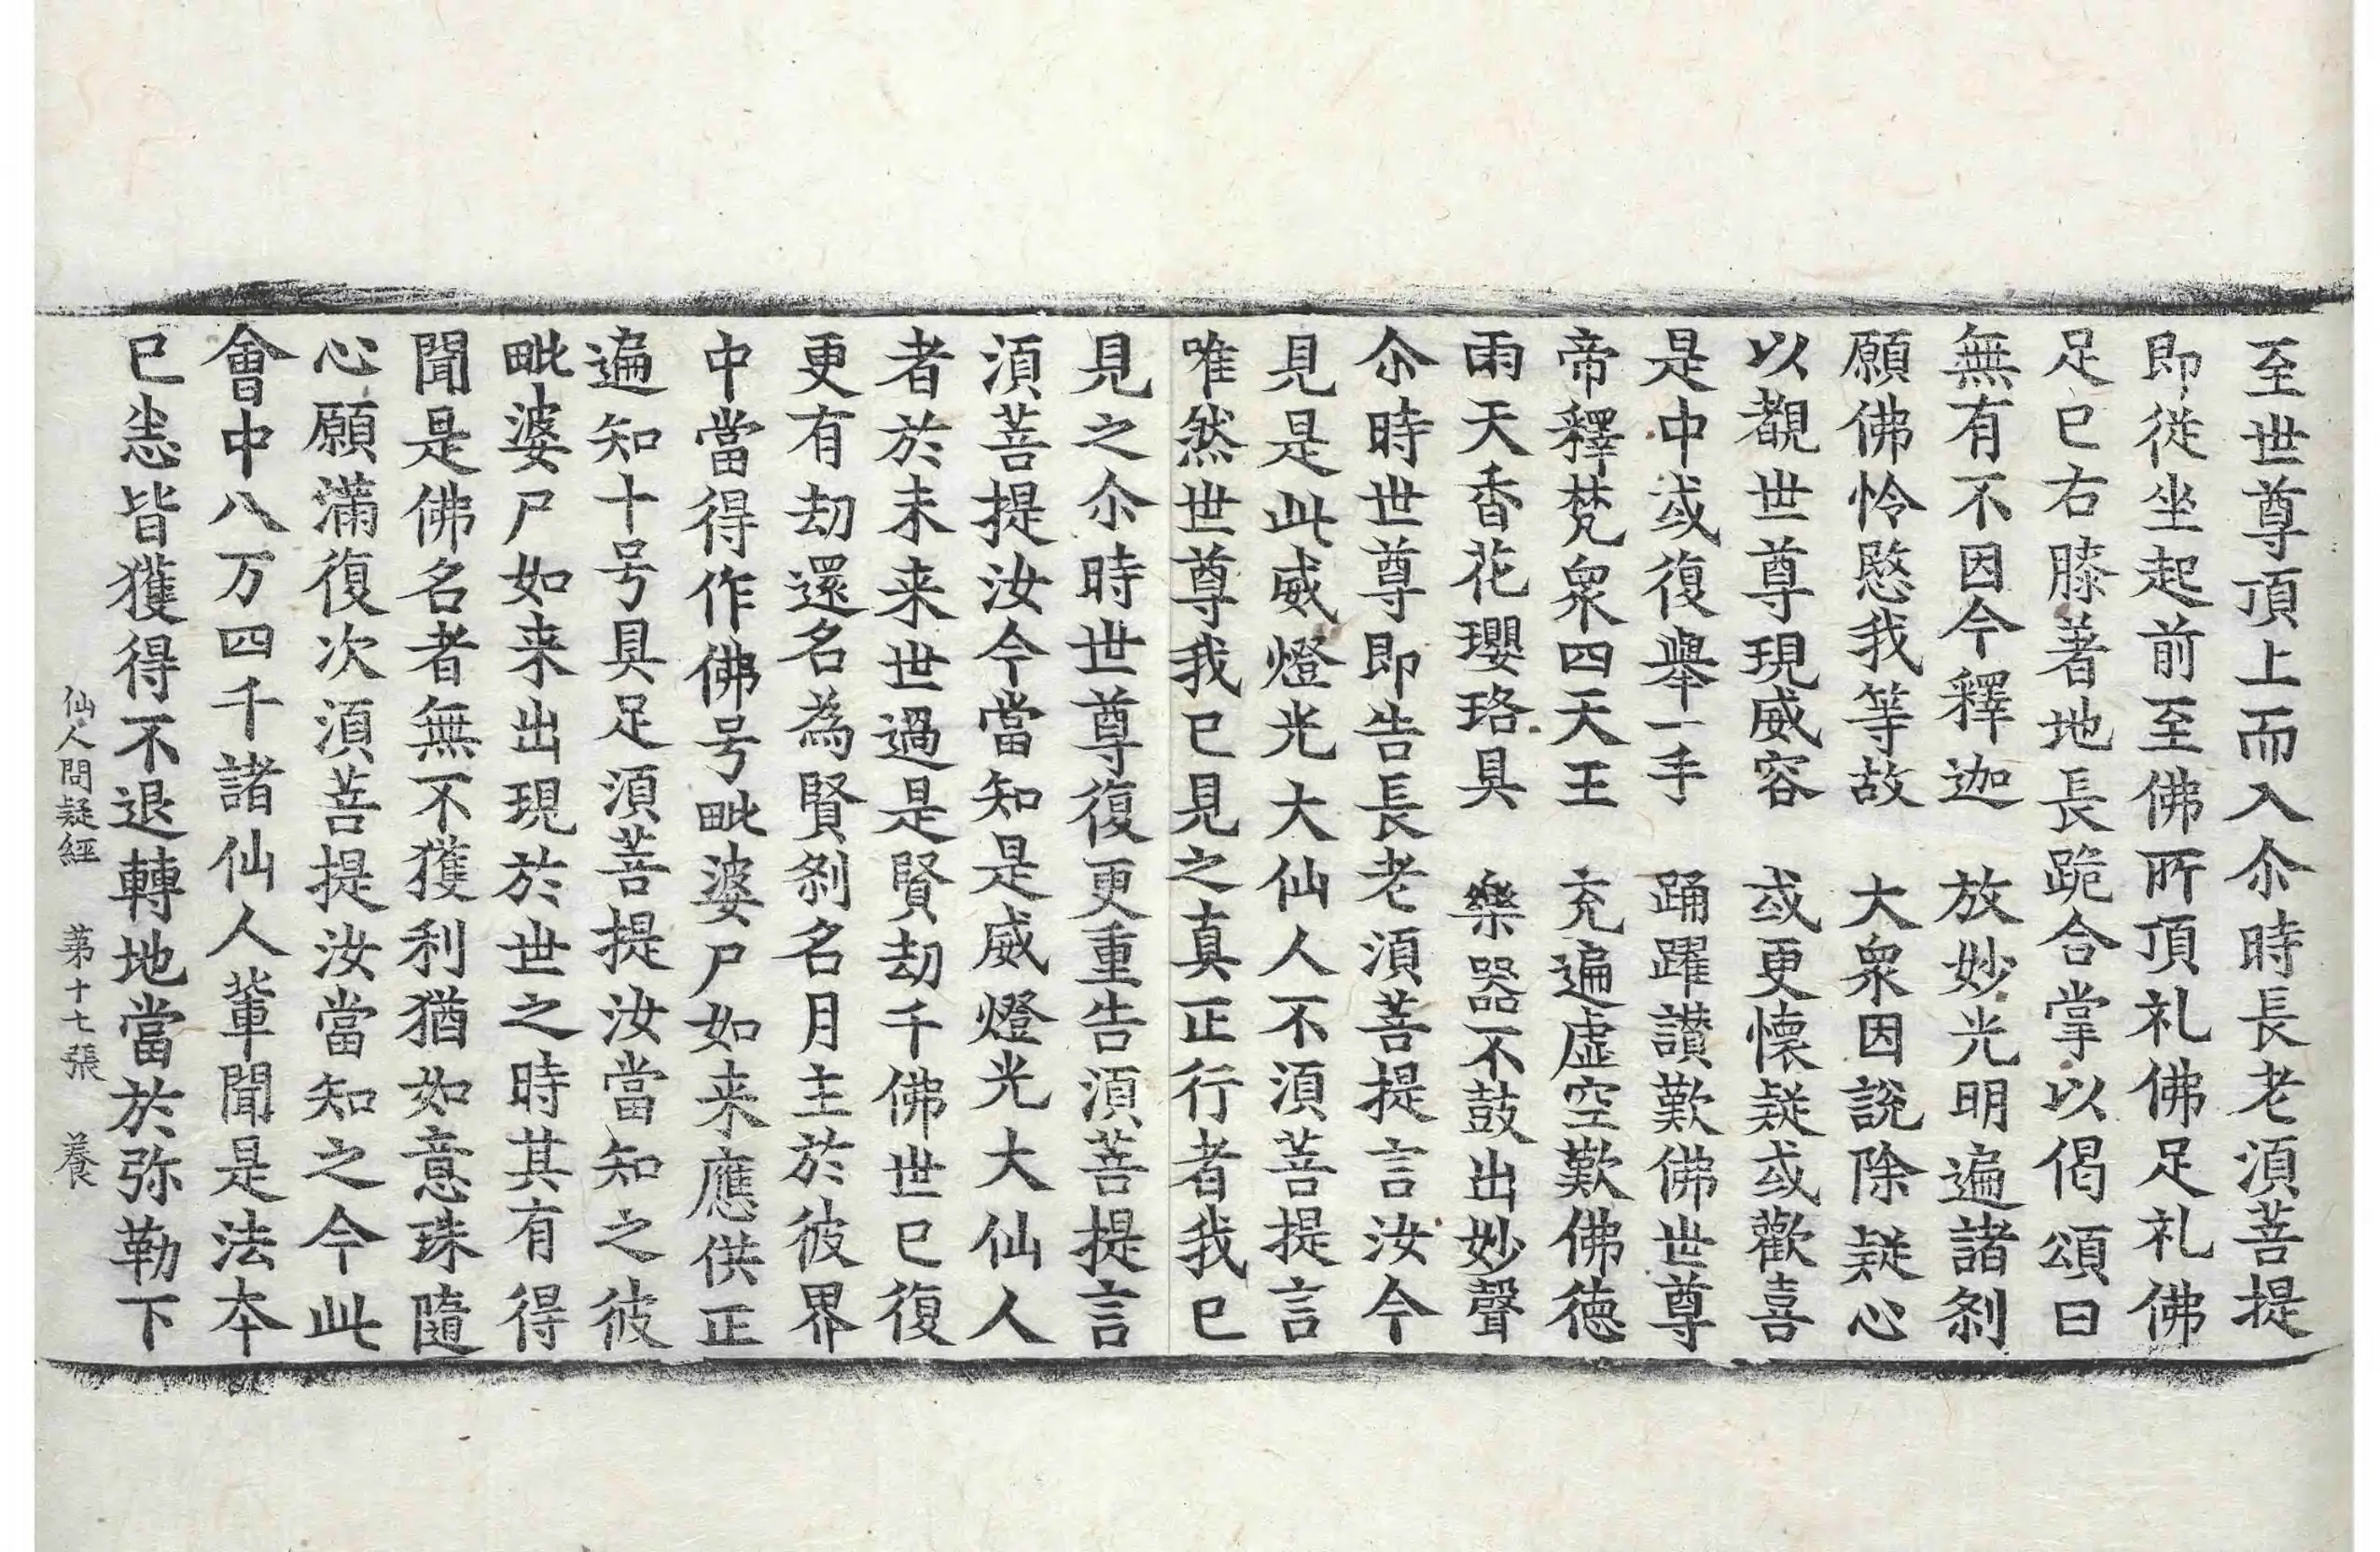 至世尊頂上而入尒時長老湏菩提
即從坐起前至佛所頂礼佛足礼佛
足已右膝著地長跪合掌以偈頌曰
無有不因今釋迦　放妙光明遍諸刹
願佛怜愍我等故　大衆因說除疑心
以覩世尊現威容　或更懐疑或歡喜
是中或復舉一手　踊躍讃歎佛世尊
帝釋梵衆四天王　充遍虛空歎佛徳
雨天香花瓔珞具　樂器不鼓出妙聲
尒時世尊即告長老湏菩提言汝今
見是此威燈光大仙人不湏菩提言
唯然世尊我已見之真正行者我已
見之尒時世尊復更重告湏菩提言
湏菩提汝今當知是威燈光大仙人
者於未来世過是賢劫千佛世已復
更有劫還名為賢刹名月主於彼界
中當得作佛号毗婆尸如来應供正
遍知十号具足湏菩提汝當知之彼
毗婆尸如来出現於世之時其有得
聞是佛名者無不獲利猶如意珠隨
心願滿復次湏菩提汝當知之今此
會中八万四千諸仙人輩聞是法本
已悉皆獲得不退轉地當於弥勒下
仙人問疑經　苐十七張　養